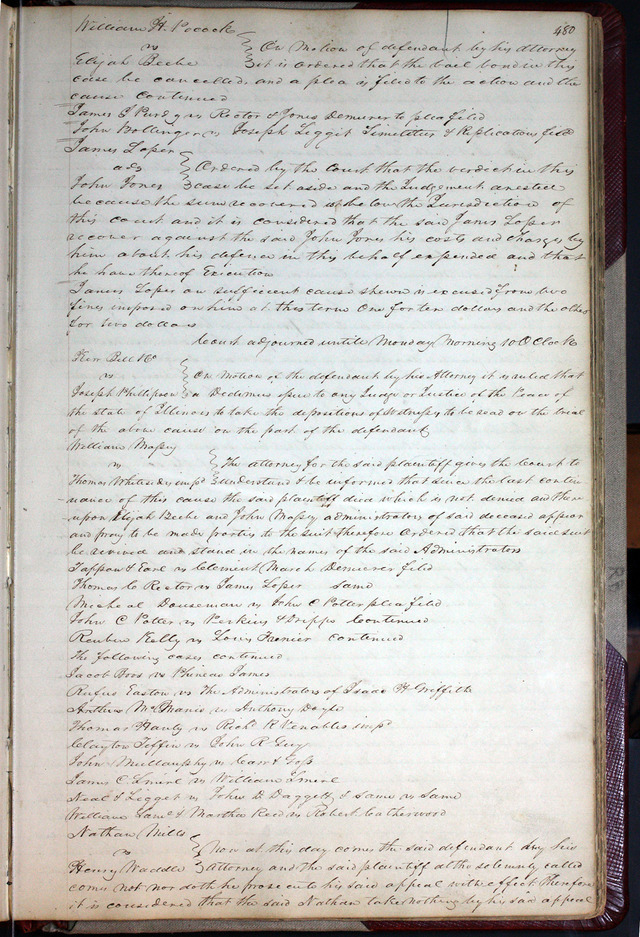 480
William H. Pocock
vs
On Motion of defendant by his attorney
Elijah Beebe
it is ordered that the bail bond in this
case be cancelled, and a plea is filed to the action and the
cause continued
James S Purdy vs Rector & Jones Demurer to plea filed
John Bollinger vs Joseph Leggit Similiters & Replications filed
James Loper
ads
Ordered by the court that the verdict in this
John Jones
case be set aside and the Judgement arested
because the sum recovered is below the Jurisdiction of
this court and it is considered that the said James Loper
recover against the said John Jones his costs and charges by
him about his defence in this behalf expended and that
he have thereof Execution
James Loper on sufficient cause shewn is excused from two
fines imposed on him at this term One for ten dollars and the other
for two dollars
Court adjourned until Monday Morning 10 O Clock
Kerr Bell &Co
vs
On Motion of the defendant by his Attorney it is ruled that
Joseph Phillipson
a Dedimus issue to any Judge or Justice of the Peace of
the State of Illinois to take the depositions of Witnesses to be read on the trial
of the above cause on the part of the defendant
William Massey
vs
The attorney for the said plaintiff gives the Court to
Thomas Whitesides impd
understand & be informed that since the last contin
nuance of this cause the said plaintiff died which is not denied and there
upon Elijah Beebe and John Massey administrators of said deceased appear
and pray to be made parties to the suit Therefore Ordered that the said suit
be revived and stand in the names of the said Administrators
Tappon & Earl vs Clement March Demurer filed
Thomas C Rector vs James Loper same
Micheal Dousman vs John C Potter plea filed
John C Potter vs Perkins & Dripps Continued
Reuben Kelly vs Louis Honier continued
The following cases continued
Jacob Boos vs Phineas James
Rufus Easton vs The Administrators of Isaac H Griffith
Arthur McManis vs Anthony Doyle
Thomas Hanly vs Richd R Venables impd
Clayton Tiffin vs John R Guy
John Mullanphy vs Carr & Goss
James C Lmirl vs William Lmirl
Neal & Legget vs John D Daggett & Same vs Same
William Saml & Martha Reed vs Robert Catherwood
Nathan Mills
vs
Now at this day comes the said defendant by his
Henry Waddle
Attorney and the said plaintiff altho solemnly called
comes not nor doth he prosecute his said appeal with effect Therefore
it is considered that the said Nathan take nothing by his said appeal